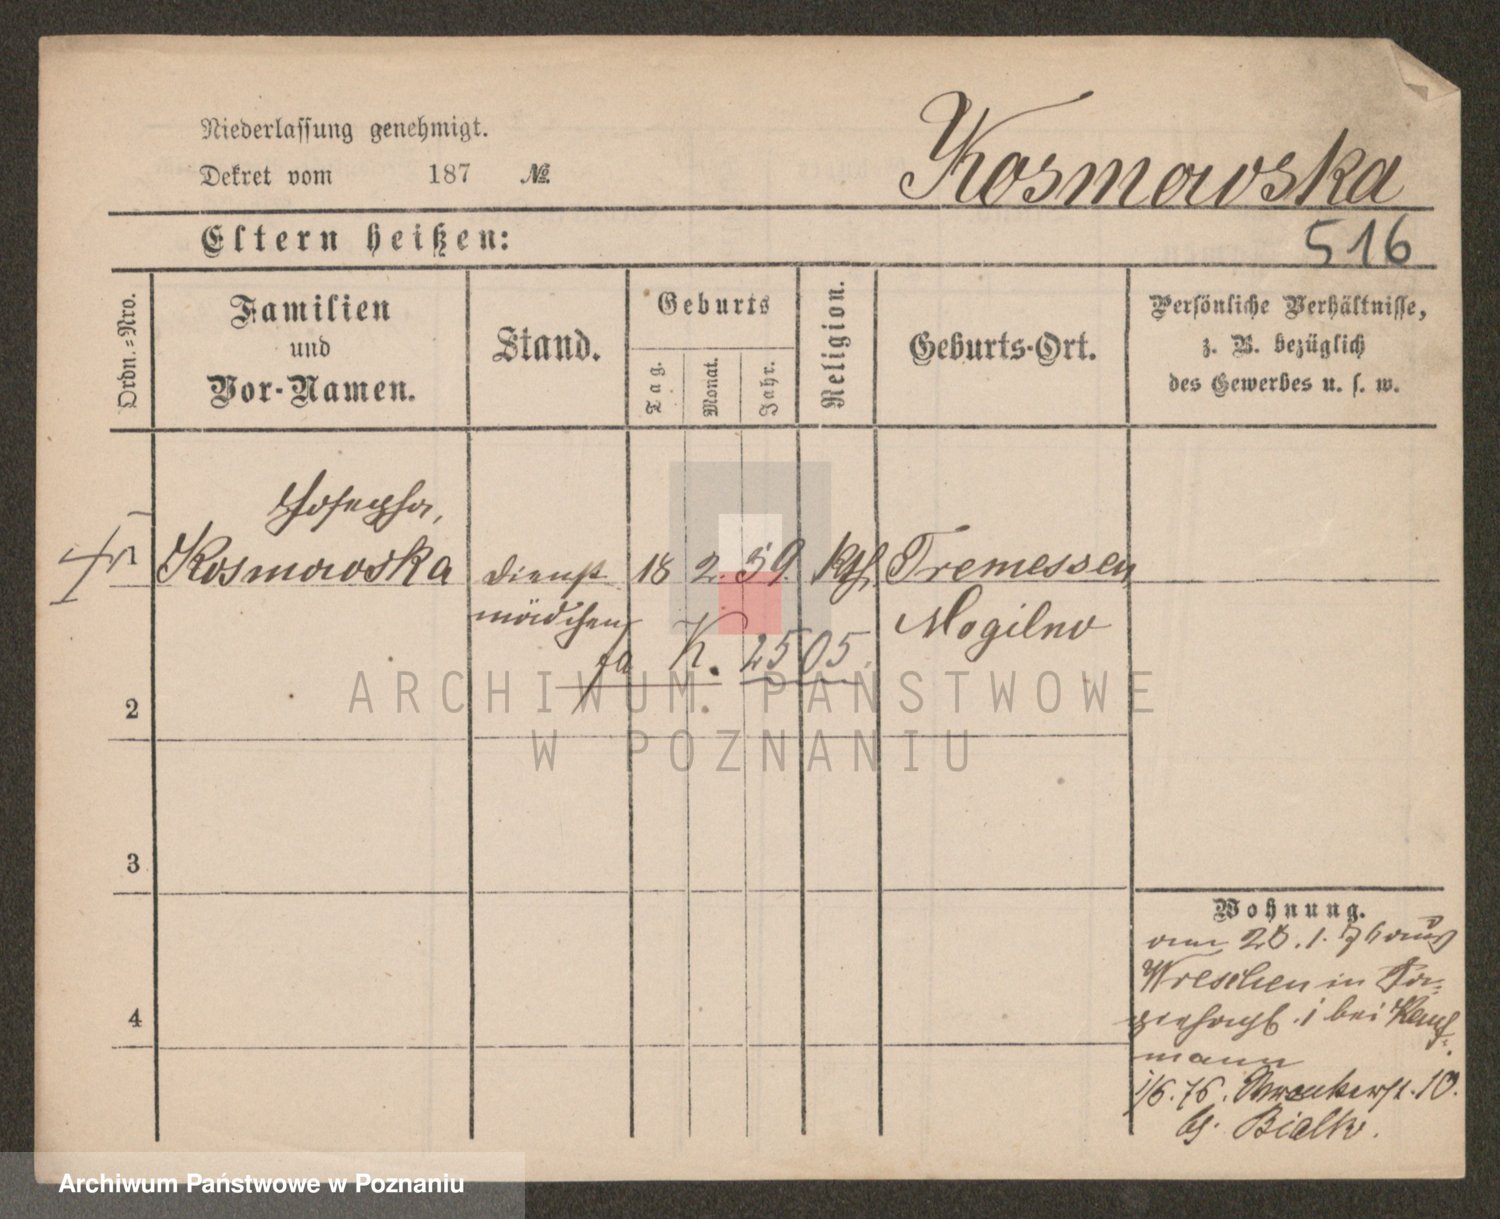 Niederlassung genehmigt.
Dekret vom 187 №
Kosmowska
Eltern heißen:
516
Ordn.-Nro.
Familien
und
Vor-Namen.
Stand.
Geburts
Tag.
Monat.
Jahr.
Religion.
Geburts-Ort.
Persönliche Verhältnisse,
z. B. bezüglich
des Gewerbes u. s. w.
Josepha,
Kosmowska
Dienst
mädchen
18 2. 59. kth.
Tremessen
Mogilno
K. 2505.
2
3
4
Wohnung.
am 28.1.76 aus
Wreschen in
bei Kauf-
mann
1/6.76. Wronkerst. 10.
b/.
ARCHIWUM PAŃSTWOWE
W POZNANIU
Archiwum Państwowe w Poznaniu